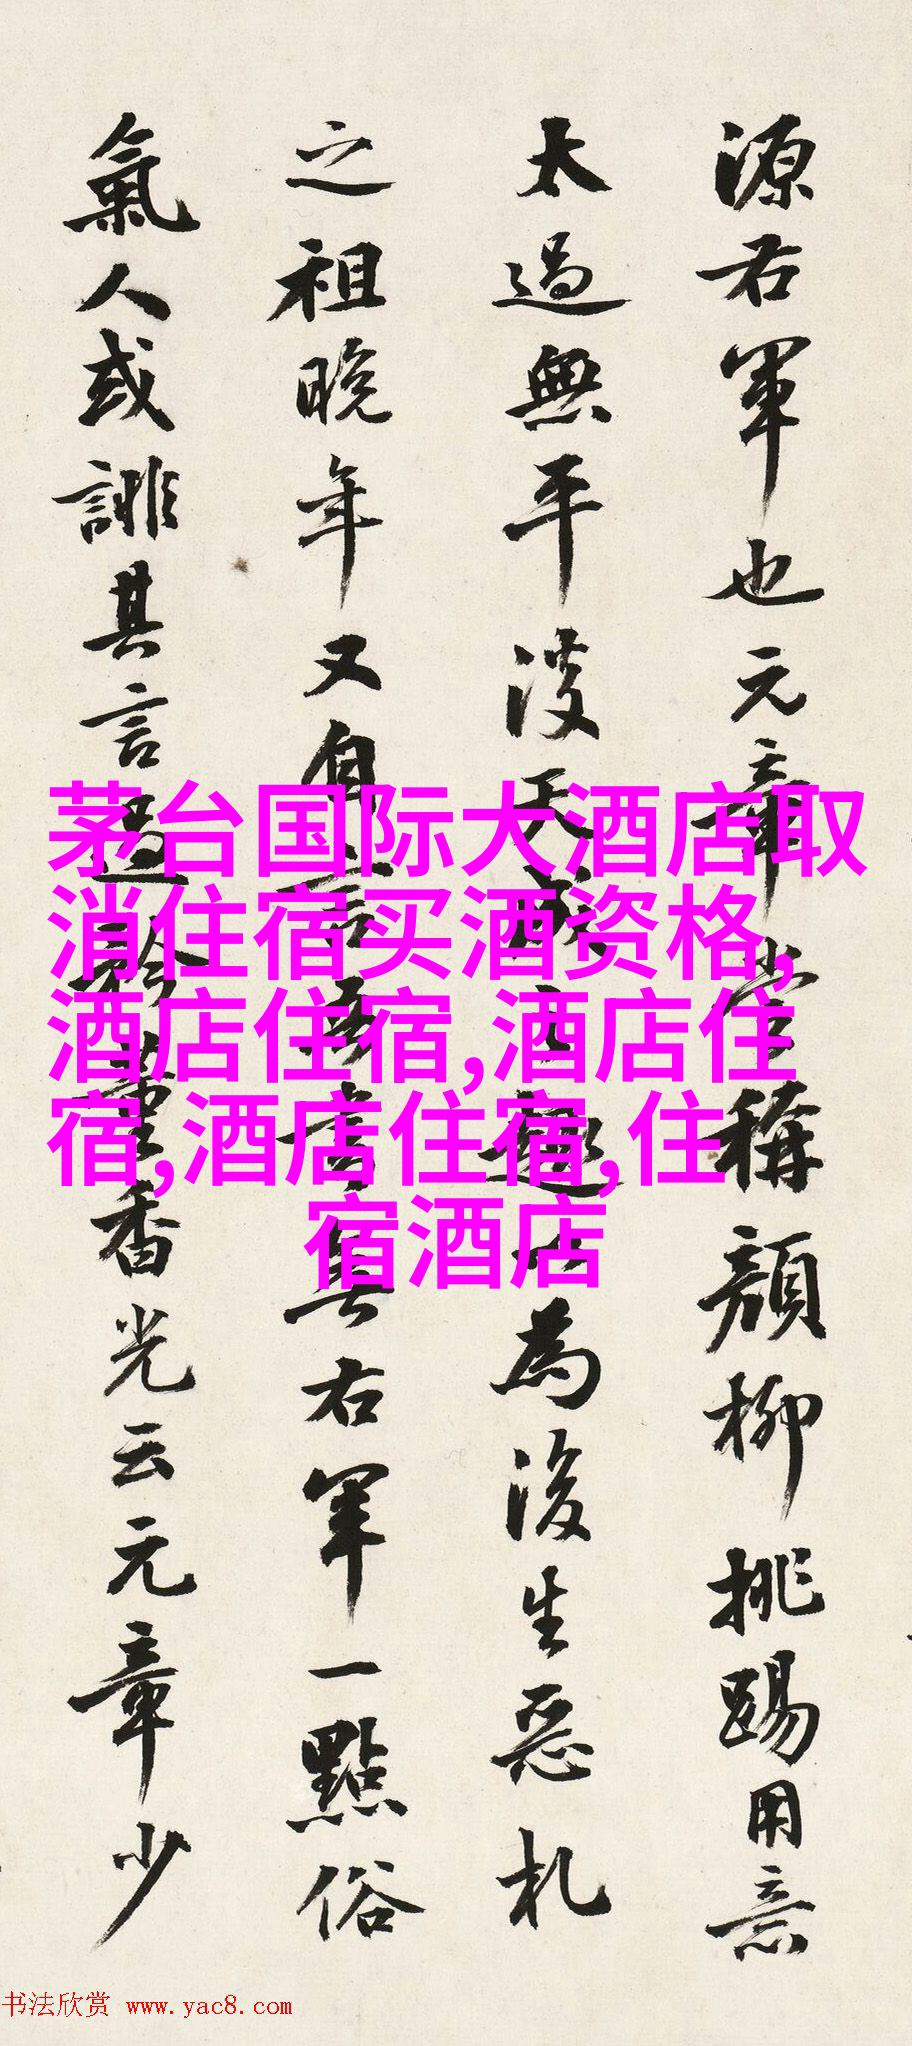 源右軍也元章嘗稱顏柳挑踢用意
太過無平淡天成之趣以為後生惡札
之祖晚年又自言吾書無右軍一點俗
氣人或誹其言過矜董香光云元章少
茅台国际大酒店取
消住宿买酒资格,
酒店住宿,酒店住
宿,酒店住宿,住
宿酒店
书法欣赏 www.yac8.com